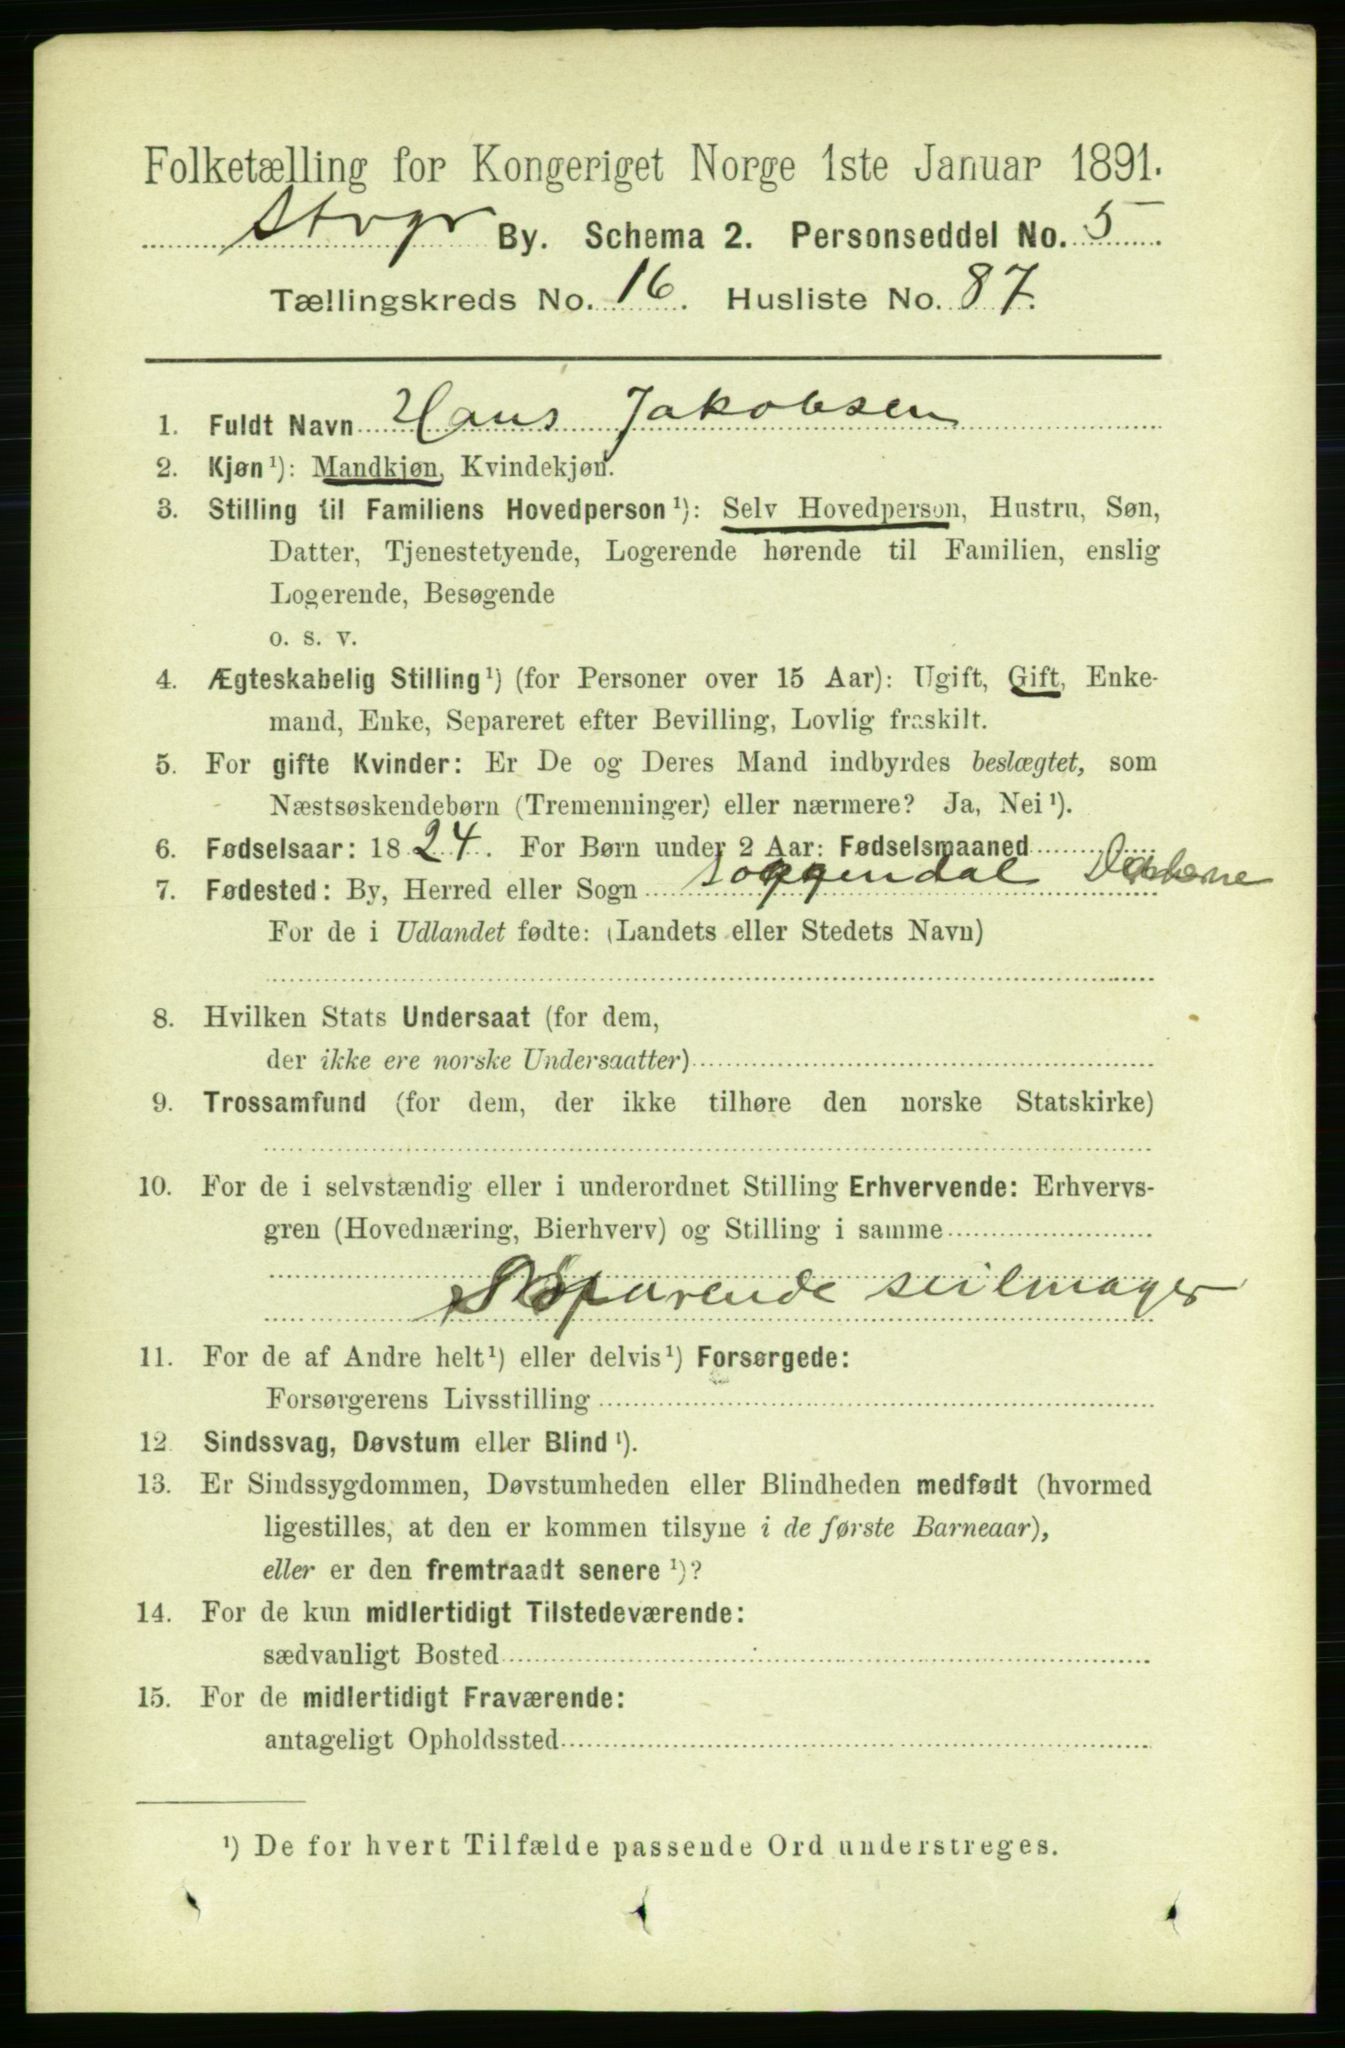 Folketælling for Kongeriget Norge 1ste Januar 1891.
Stvgr By. Schema 2. Personseddel No. 5
Tællingskreds No. 16. Husliste No. 87.
1. Fuldt Navn Hans Jakobsen
2. Kjøn¹): Mandkjøn, Kvindekjøn.
3. Stilling til Familiens Hovedperson¹): Selv Hovedperson, Hustru, Søn,
Datter, Tjenestetyende, Logerende hørende til Familien, enslig
Logerende, Besøgende
o. s. v.
4. Ægteskabelig Stilling¹) (for Personer over 15 Aar): Ugift, Gift, Enke-
mand, Enke, Separeret efter Bevilling, Lovlig fraskilt.
5. For gifte Kvinder: Er De og Deres Mand indbyrdes beslægtet, som
Næstsøskendebørn (Tremenninger) eller nærmere? Ja, Nei¹).
6. Fødselsaar: 1824. For Børn under 2 Aar: Fødselsmaaned
7. Fødested: By, Herred eller Sogn Soggendal Dalerne
For de i Udlandet fødte: (Landets eller Stedets Navn)
8. Hvilken Stats Undersaat (for dem,
der ikke ere norske Undersaatter)
9. Trossamfund (for dem, der ikke tilhøre den norske Statskirke)
10. For de i selvstændig eller i underordnet Stilling Erhvervende: Erhvervs-
gren (Hovednæring, Bierhverv) og Stilling i samme
seilmager
11. For de af Andre helt¹) eller delvis¹) Forsørgede:
Forsørgerens Livsstilling
12. Sindssvag, Døvstum eller Blind¹).
13. Er Sindssygdommen, Døvstumheden eller Blindheden medfødt (hvormed
ligestilles, at den er kommen tilsyne i de første Barneaar),
eller er den fremtraadt senere¹)?
14. For de kun midlertidigt Tilstedeværende:
sædvanligt Bosted
15. For de midlertidigt Fraværende:
antageligt Opholdssted
¹) De for hvert Tilfælde passende Ord understreges.